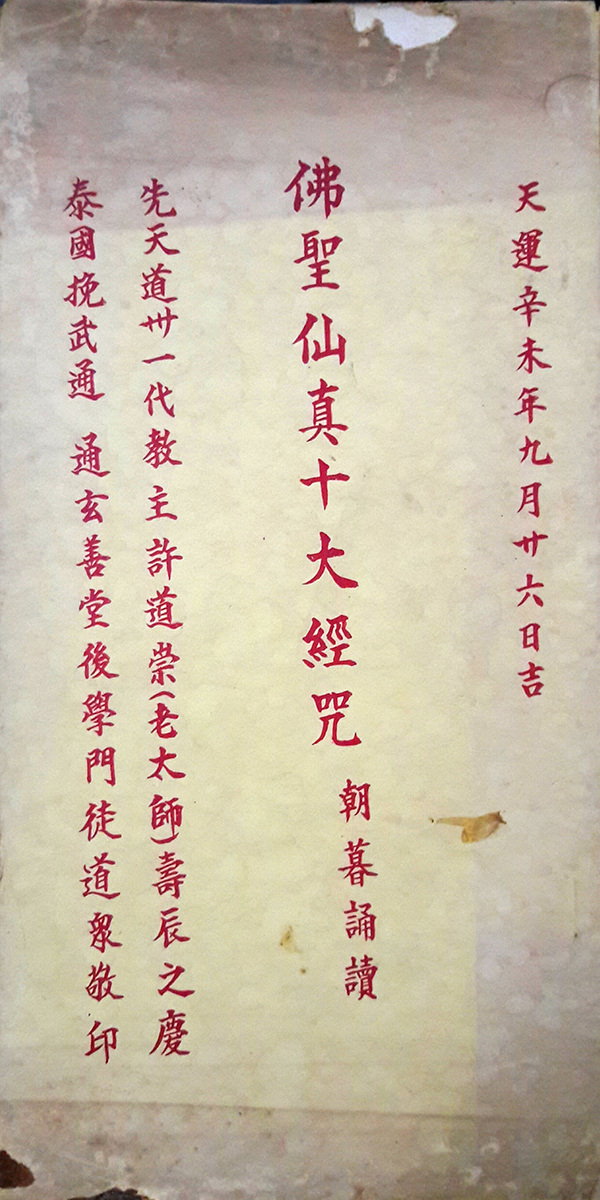 天運辛未年九月廿六日吉
佛聖仙真十大經咒
朝暮誦讀
先天道卅一代教主許道崇(老太師)壽辰之慶
泰國挽武通 通玄善堂後學門徒道衆敬印